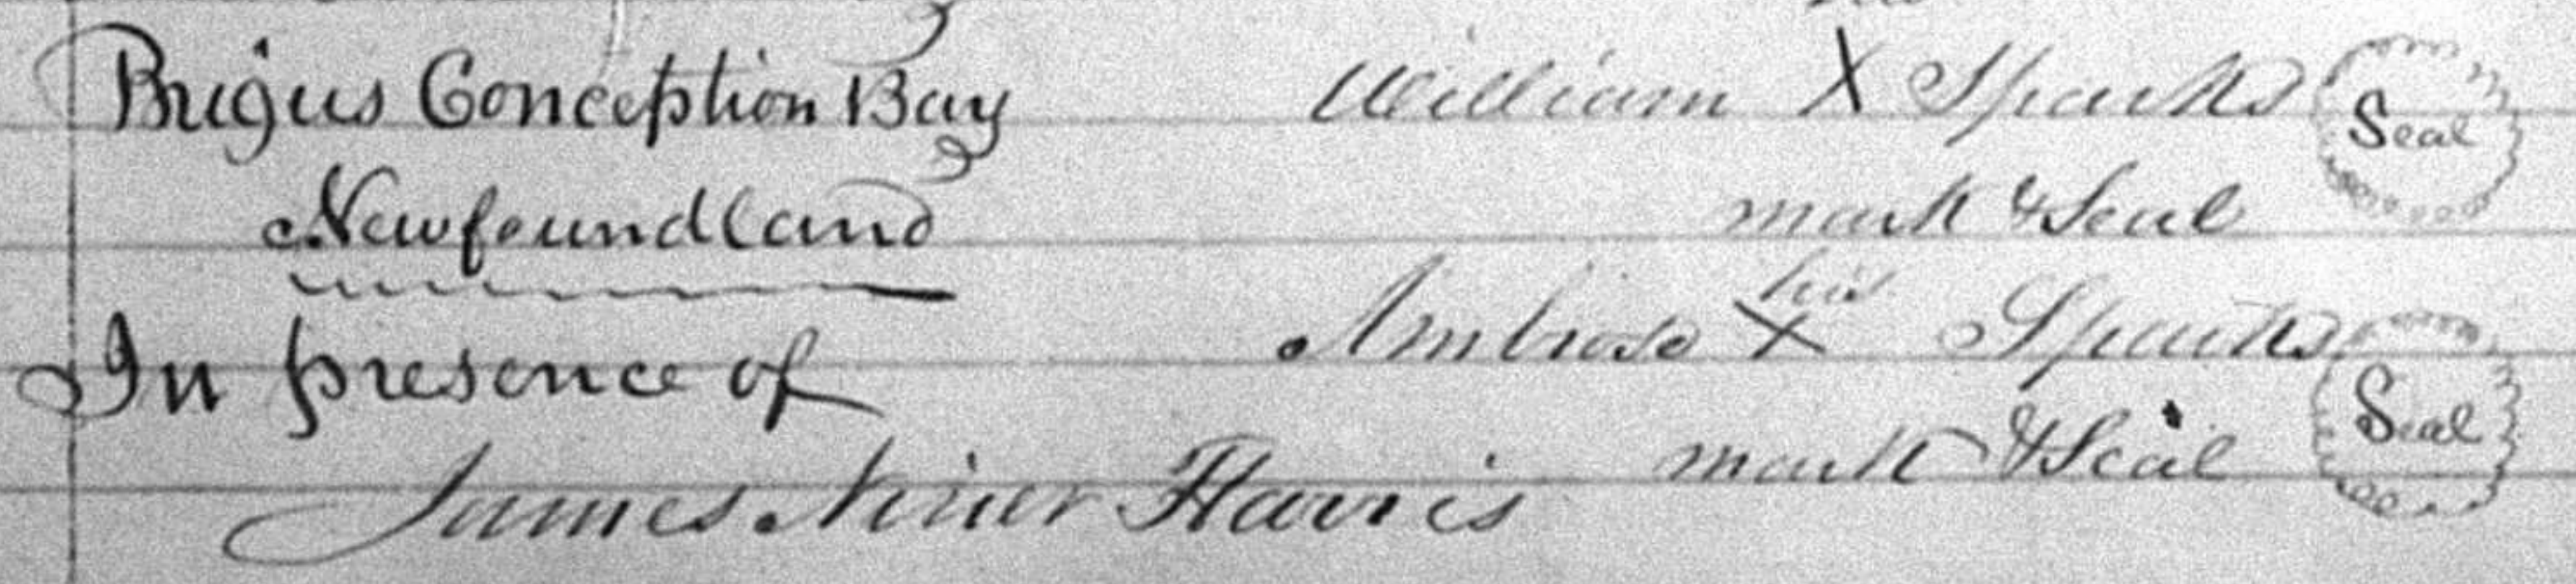 Brigus Conception Bay
Newfoundland
In presence of
James Niner Harris
William X Sparks Seal
mark & Seal
his
Ambrose X Sparks Seal
mark & Seal